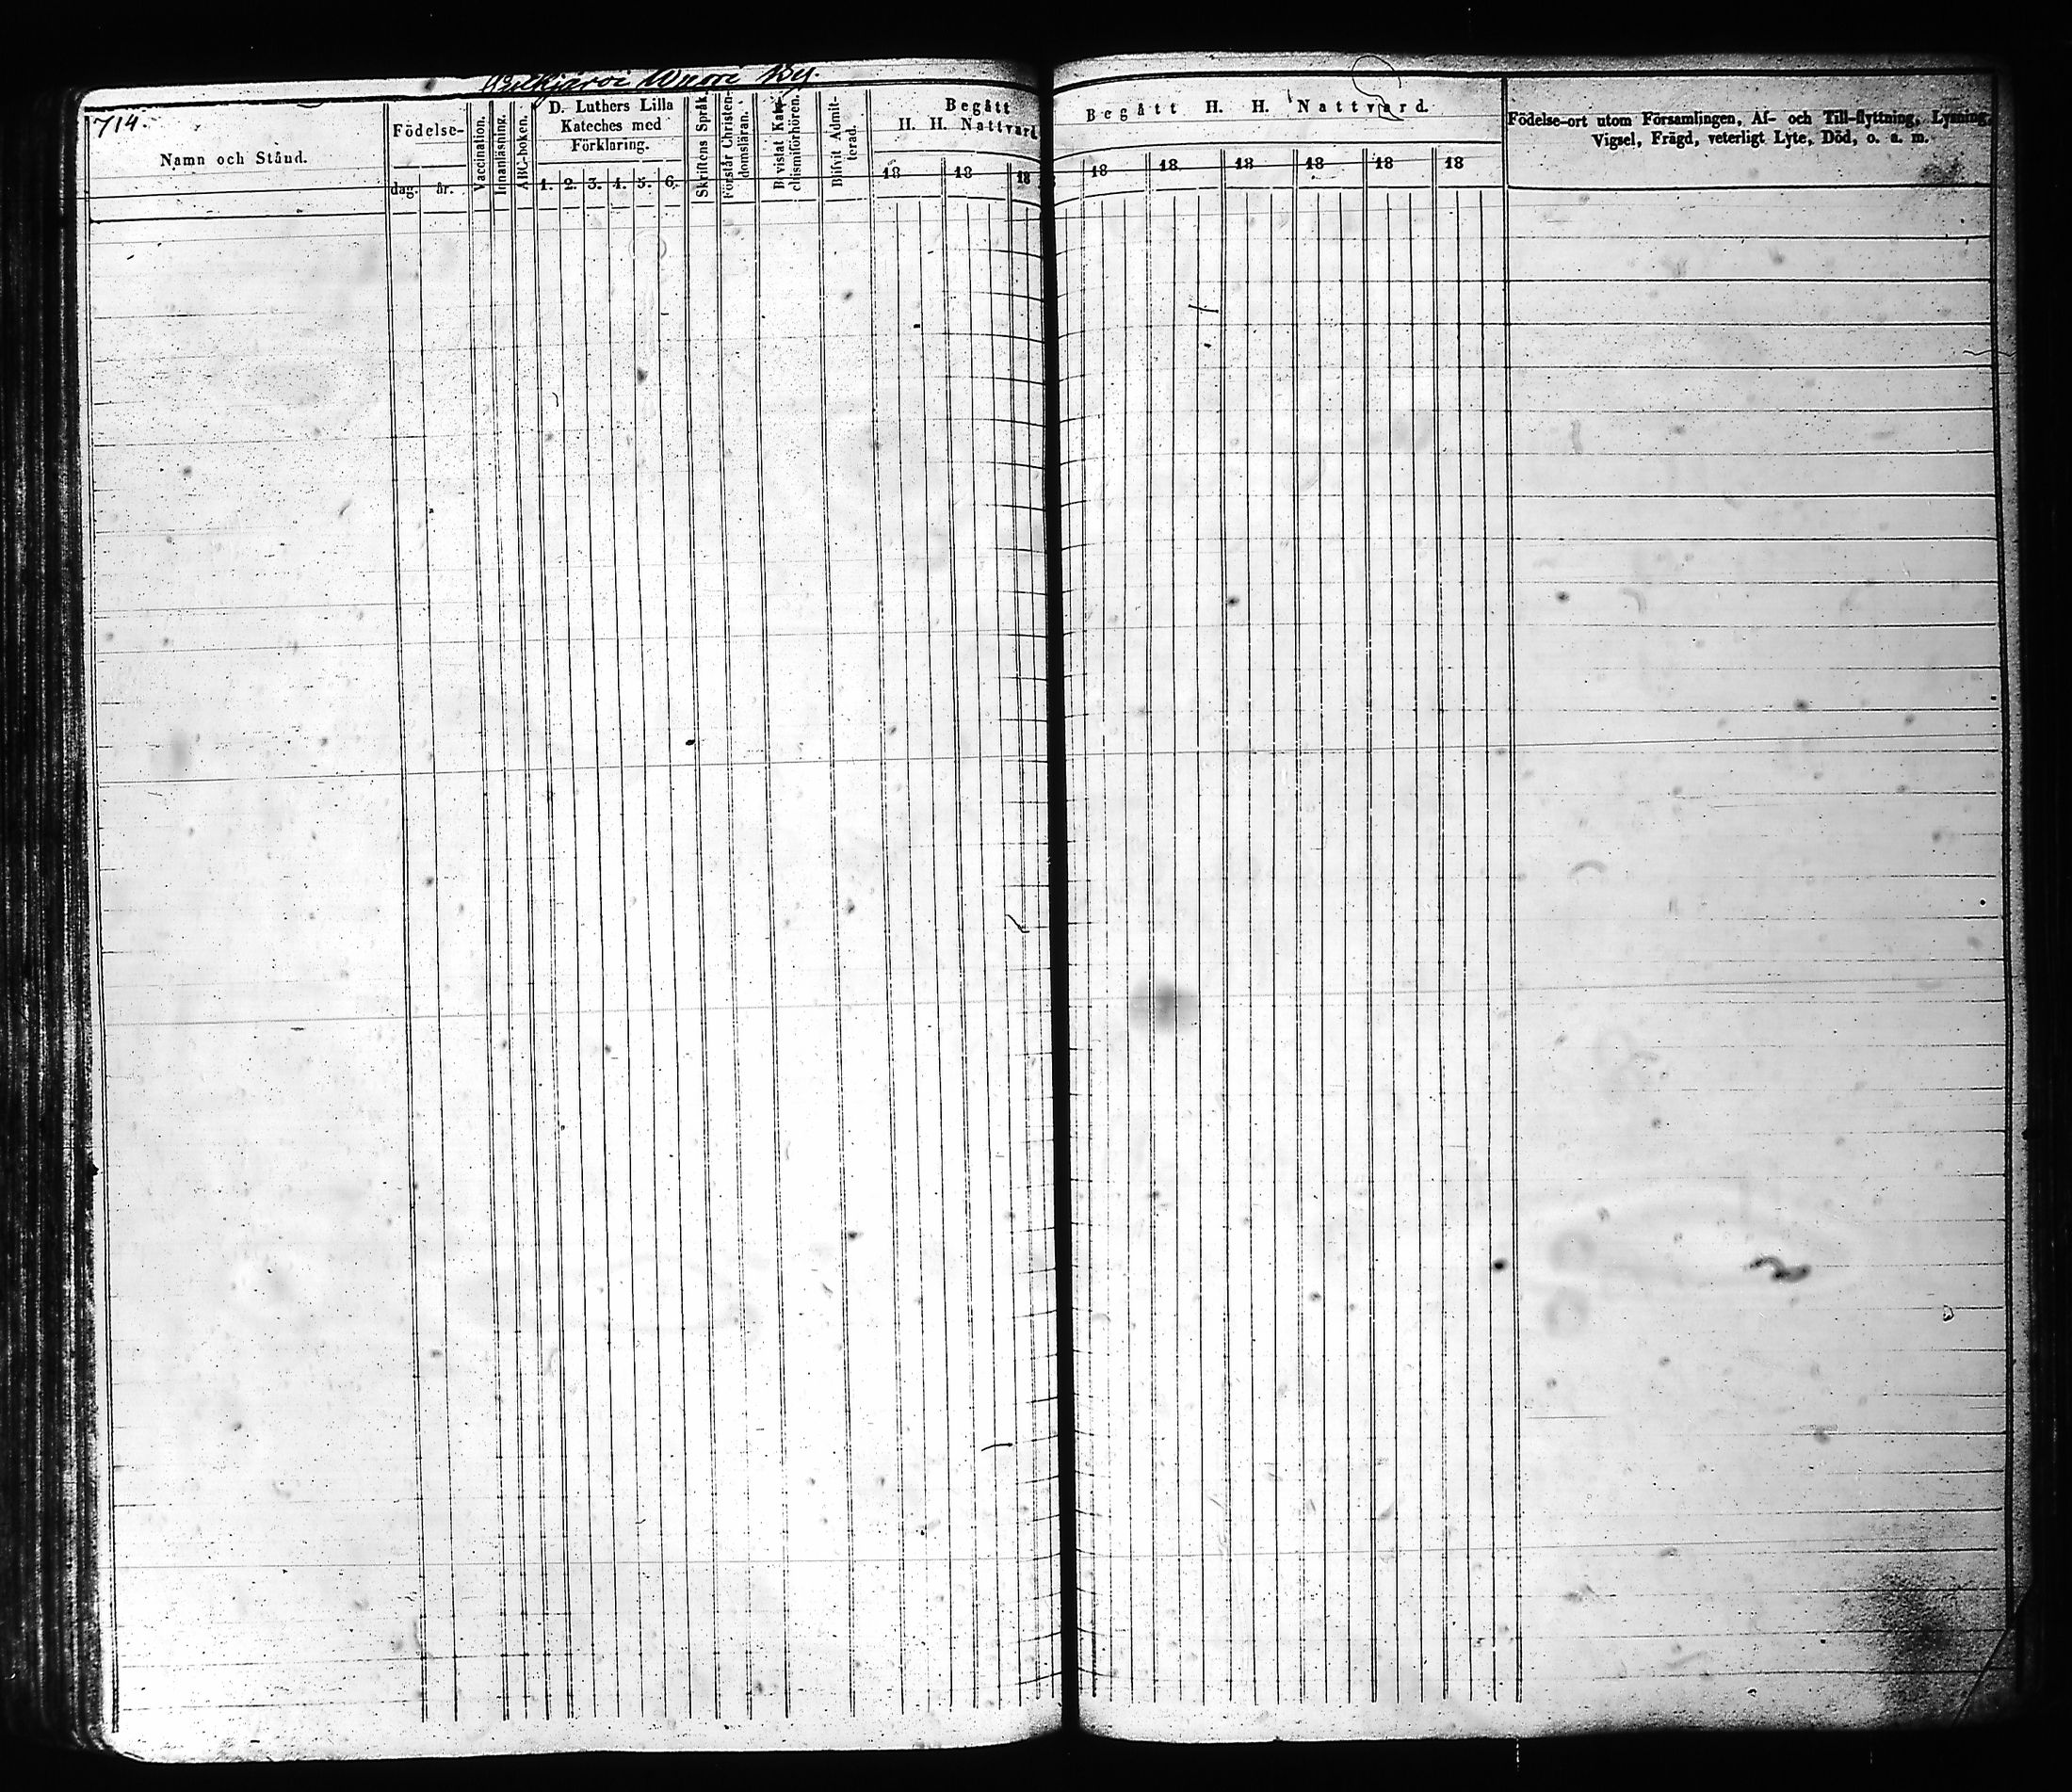 By.
714.
Namn och Stånd.
Födelse-
dag. år.
Vaccination.
Innanläsning.
ABC-boken.
D. Luthers Lilla
Kateches med
Förklaring.
1. 2. 3. 4. 5. 6.
Skriftens Språk.
Förstår Christen-
domsläran.
Bevistat Kate-
chismiförhören.
Blifvit Admit-
terad.
Begått
H. H. Nattvard
18 18 18
Begått H. H. Nattvard.
18 18 18 18 18 18
Födelse-ort utom Församlingen, Af- och Till-flyttning, Lysning,
Vigsel, Frägd, veterligt Lyte, Död, o. a. m.